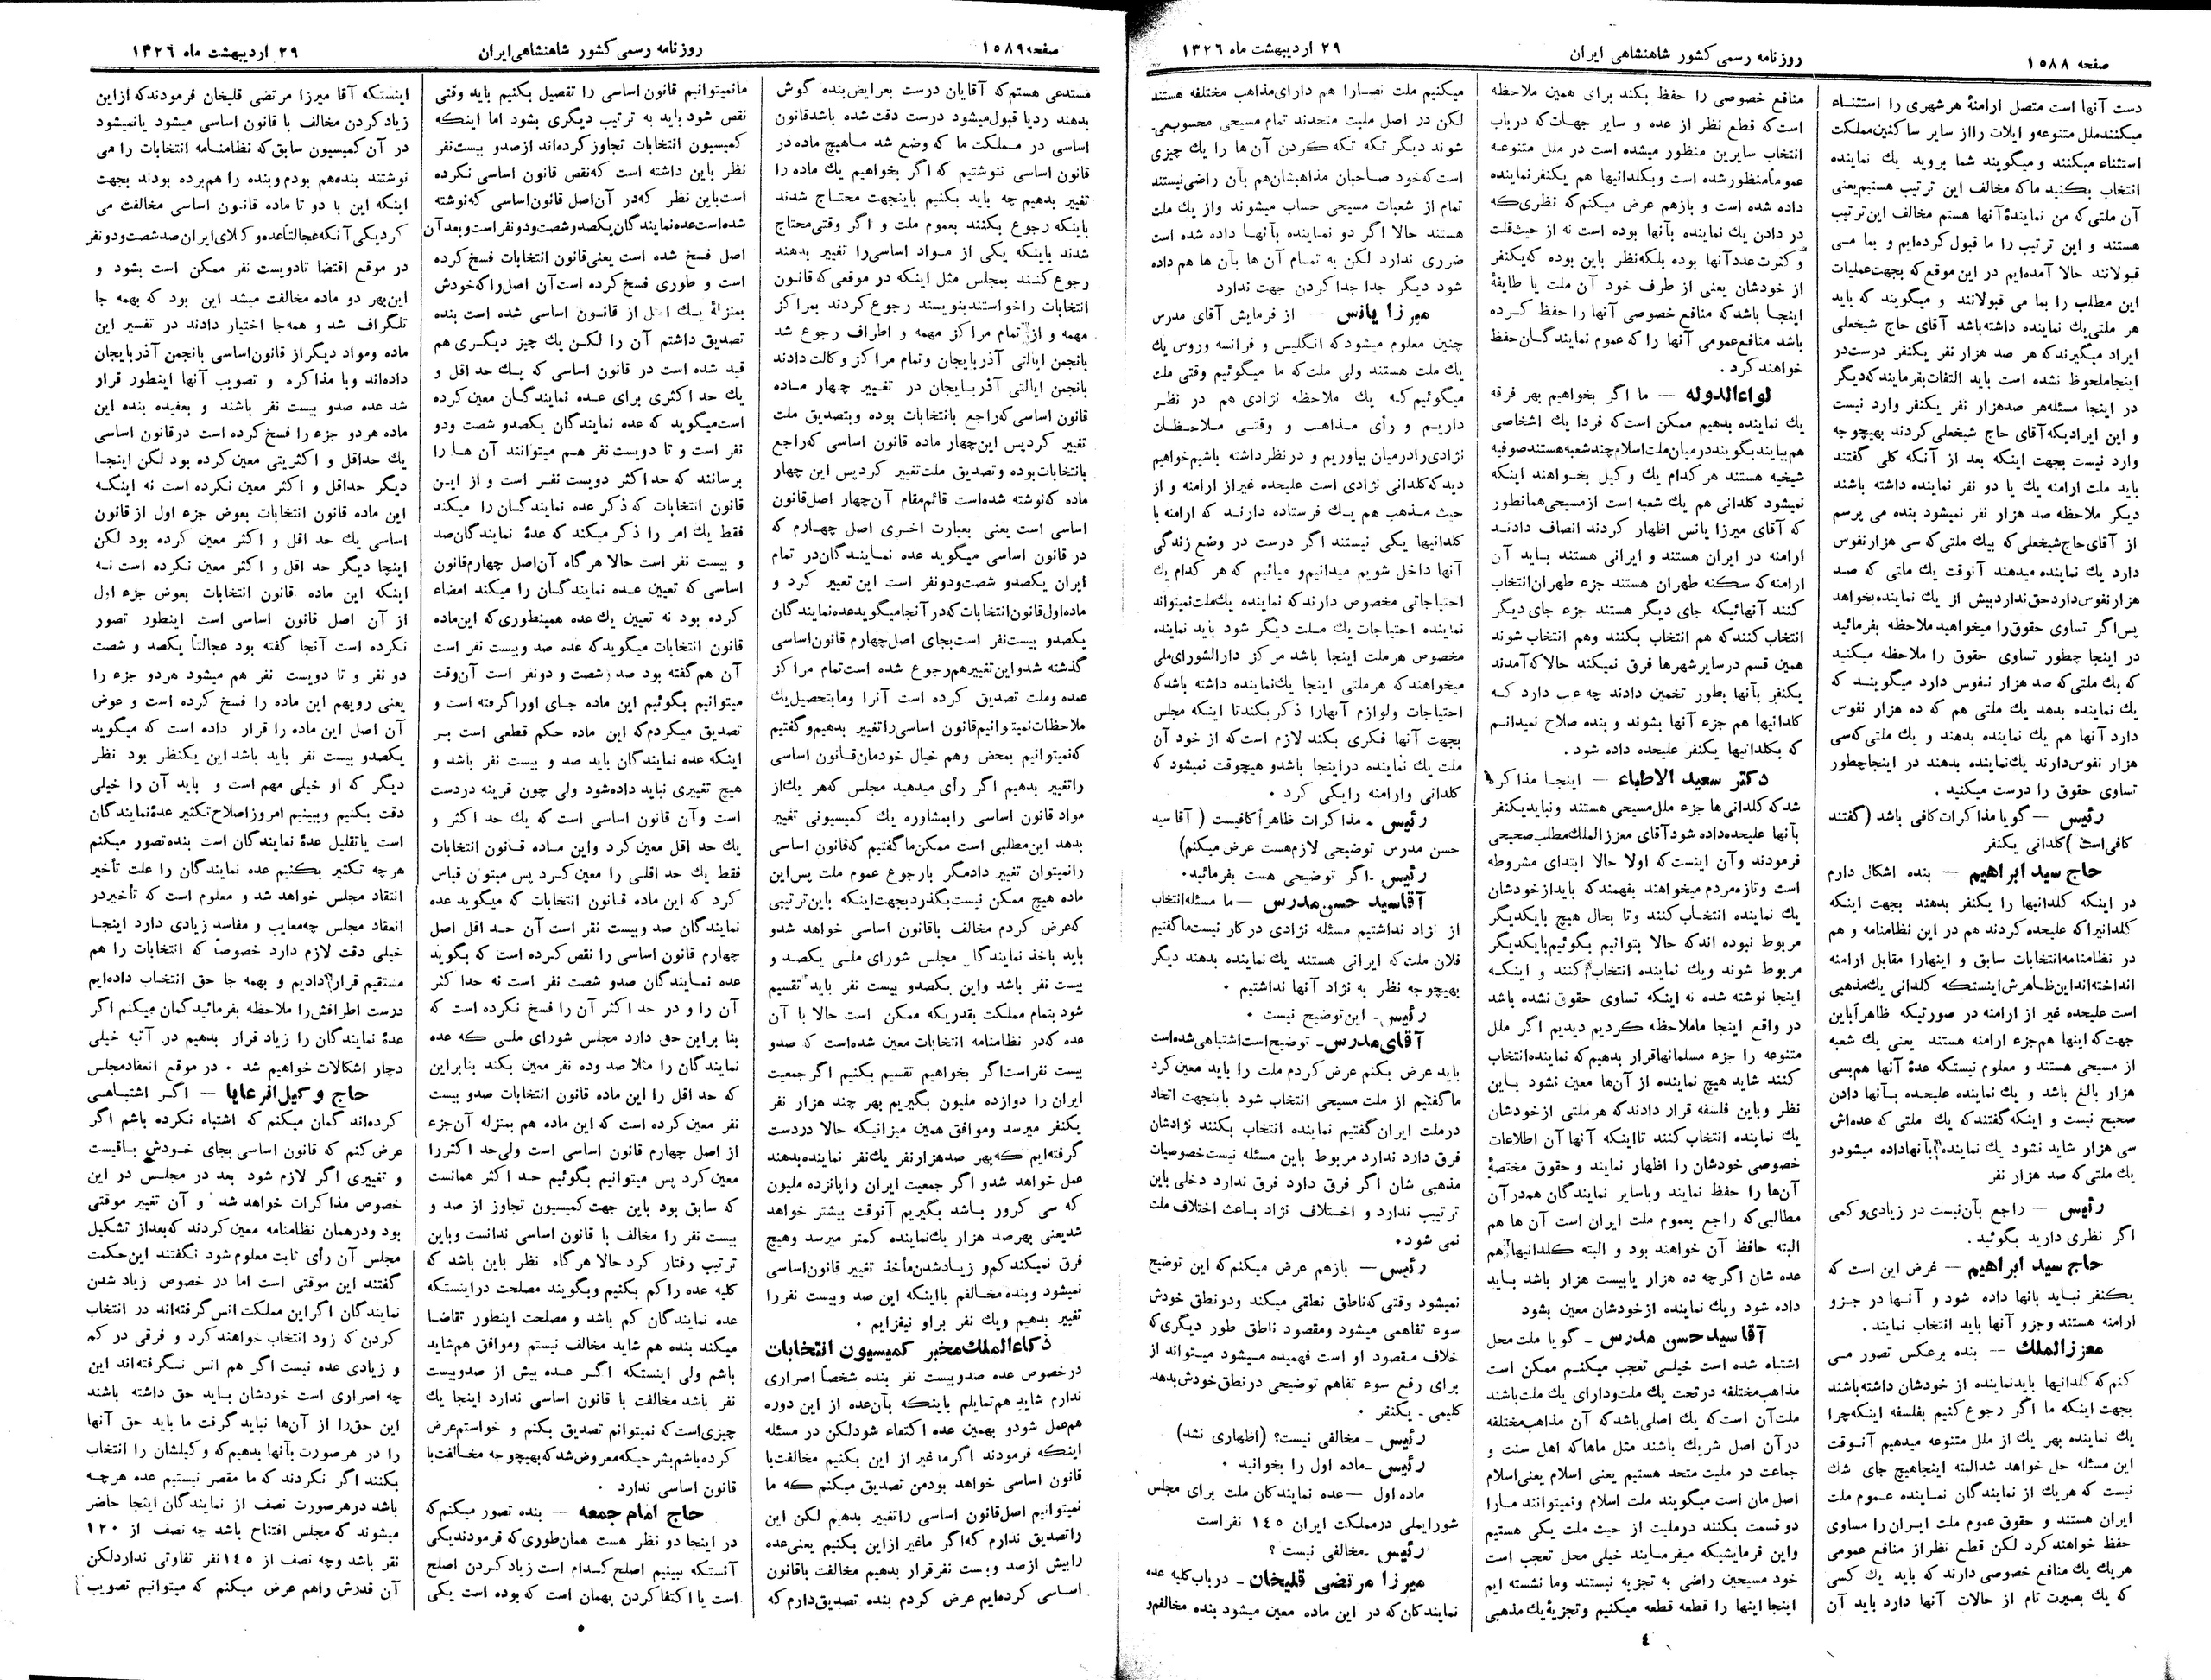 صفحه ۱۵۸۸
روزنامه رسمی کشور شاهنشاهی ایران
۲۹ اردیبهشت ماه ۱۳۲۶
دست آنها است متصل ارامنهٔ هر شهری را استثناء
میکنند ملل متنوعه و ایلات را از سایر ساکنین مملکت
استثناء میکنند و میگویند شما بروید یك نماینده
انتخاب بکنید ما که مخالف این ترتیب هستیم یعنی
آن ملتی که من نمایندهٔ آنها هستم مخالف این ترتیب
هستند و این ترتیب را ما قبول کرده‌ایم و بما می
قبولانند حالا آمده‌ایم در این موقع که بجهت عملیات
این مطلب را بما می قبولانند و میگویند که باید
هر ملتی یك نماینده داشته باشد آقای حاج شیخعلی
ایراد میگیرند که هر صد هزار نفر یکنفر درست در
اینجا ملحوظ نشده است باید التفات بفرمایند که دیگر
در اینجا مسئله هر صد هزار نفر یکنفر وارد نیست
و این ایرادیکه آقای حاج شیخعلی کردند بهیچوجه
وارد نیست بجهت اینکه بعد از آنکه کلی گفتند
باید ملت ارامنه یك یا دو نفر نماینده داشته باشند
دیگر ملاحظه صد هزار نفر نمیشود بنده می پرسم
از آقای حاج شیخعلی که بیك ملتی که سی هزار نفوس
دارد یك نماینده میدهند آنوقت یك ملتی که صد
هزار نفوس دارد حق ندارد بیش از یك نماینده بخواهد
پس اگر تساوی حقوق را میخواهید ملاحظه بفرمائید
در اینجا چطور تساوی حقوق را ملاحظه میکنید
که یك ملتی که صد هزار نفوس دارد میگویند که
یك نماینده بدهد یك ملتی هم که ده هزار نفوس
دارد آنها هم یك نماینده بدهند و یك ملتی که سی
هزار نفوس دارند یك نماینده بدهند در اینجا چطور
تساوی حقوق را درست میکنید .
رئیس — گویا مذاکرات کافی باشد (گفتند
کافی است) کلدانی یکنفر
حاج سید ابراهیم — بنده اشکال دارم
در اینکه کلدانیها را یکنفر بدهند بجهت اینکه
کلدانی را که علیحده کردند هم در این نظامنامه و هم
در نظامنامه انتخابات سابق و اینها را مقابل ارامنه
انداخته‌اند این ظاهرش اینستکه کلدانی یك مذهبی
است علیحده غیر از ارامنه در صورتیکه ظاهراً باین
جهت که اینها هم جزء ارامنه هستند یعنی یك شعبه
از مسیحی هستند و معلوم نیستکه عدهٔ آنها هم بسی
هزار بالغ باشد و یك نماینده علیحده بآنها دادن
صحیح نیست و اینکه گفتند که یك ملتی که عده‌اش
سی هزار شاید نشود یك نماینده بآنها داده میشود و
یك ملتی که صد هزار نفر
رئیس — راجع بآن نیست در زیادی و کمی
اگر نظری دارید بگوئید .
حاج سید ابراهیم — غرض این است که
یکنفر نباید بانها داده شود و آنها در جزو
ارامنه هستند و جزو آنها باید انتخاب نمایند .
معزز الملك — بنده برعکس تصور می
کنم که کلدانیها باید نماینده از خودشان داشته باشند
بجهت اینکه ما اگر رجوع کنیم بفلسفه اینکه چرا
یك نماینده بهر یك از ملل متنوعه میدهیم آنوقت
این مسئله حل خواهد شد البته اینجا هیچ جای شك
نیست که هر یك از نمایندگان نماینده عموم ملت
ایران هستند و حقوق عموم ملت ایران را مساوی
حفظ خواهند کرد لکن قطع نظر از منافع عمومی
هر یك یك منافع خصوصی دارند که باید یك کسی
که یك بصیرت تام از حالات آنها دارد باید آن
منافع خصوصی را حفظ بکند برای همین ملاحظه
است که قطع نظر از عده و سایر جهات که در باب
انتخاب سایرین منظور میشده است در ملل متنوعه
عموماً منظور شده است و بکلدانیها هم یکنفر نماینده
داده شده است و باز هم عرض میکنم که نظری که
در دادن یك نماینده بآنها بوده است نه از حیث قلت
و کثرت عدد آنها بوده بلکه نظر باین بوده که یکنفر
از خودشان یعنی از طرف خود آن ملت یا طایفهٔ
اینجا باشد که منافع خصوصی آنها را حفظ کرده
باشد منافع عمومی آنها را که عموم نمایندگان حفظ
خواهند کرد .
لواءالدوله — ما اگر بخواهیم بهر فرقه
یك نماینده بدهیم ممکن است که فردا یك اشخاصی
هم بیایند بگویند در میان ملت اسلام چند شعبه هستند صوفیه
شیخیه هستند هر کدام یك وکیل بخواهند اینکه
نمیشود کلدانی هم یك شعبه است از مسیحی همانطور
که آقای میرزا یانس اظهار کردند انصاف دادند
ارامنه در ایران هستند و ایرانی هستند باید آن
ارامنه که سکنه طهران هستند جزء طهران انتخاب
کنند آنهائیکه جای دیگر هستند جزء جای دیگر
انتخاب کنند که هم انتخاب بکنند وهم انتخاب شوند
همین قسم در سایر شهرها فرق نمیکند حالا که آمدند
یکنفر بآنها بطور تخمین دادند چه عیب دارد که
کلدانیها هم جزء آنها بشوند و بنده صلاح نمیدانم
که بکلدانیها یکنفر علیحده داده شود .
دکتر سعید الاطباء — اینجا مذاکره
شد که کلدانی‌ها جزء ملل مسیحی هستند و نباید یکنفر
بآنها علیحده داده شود آقای معزز الملك مطلب صحیحی
فرمودند و آن اینست که اولا حالا ابتدای مشروطه
است و تازه مردم میخواهند بفهمند که باید از خودشان
یك نماینده انتخاب کنند و تا بحال هیچ بایکدیگر
مربوط نبوده اند که حالا بتوانیم بگوئیم بایکدیگر
مربوط شوند ویك نماینده انتخاب کنند و اینکه
اینجا نوشته شده نه اینکه تساوی حقوق نشده باشد
در واقع اینجا ما ملاحظه کردیم دیدیم اگر ملل
متنوعه را جزء مسلمانها قرار بدهیم که نماینده انتخاب
کنند شاید هیچ نماینده از آن‌ها معین نشود باین
نظر و باین فلسفه قرار دادند که هر ملتی از خودشان
یك نماینده انتخاب کنند تا اینکه آنها آن اطلاعات
خصوصی خودشان را اظهار نمایند و حقوق مختصهٔ
آن‌ها را حفظ نمایند و باسایر نمایندگان هم در آن
مطالبی که راجع بعموم ملت ایران است آن ها هم
البته حافظ آن خواهند بود و البته کلدانیها هم
عده شان اگرچه ده هزار یا بیست هزار باشد باید
داده شود ویك نماینده از خودشان معین بشود
آقا سید حسن مدرس — گویا ملت محل
اشتباه شده است خیلی تعجب میکنم ممکن است
مذاهب مختلفه در تحت یك ملت و دارای یك ملت باشند
ملت آن است که یك اصلی باشد که آن مذاهب مختلفه
در آن اصل شریك باشند مثل ماها که اهل سنت و
جماعت در ملیت متحد هستیم یعنی اسلام یعنی اسلام
اصل مان است میگویند ملت اسلام و نمیتوانند ما را
دو قسمت بکنند در ملیت از حیث ملت یکی هستیم
و این فرمایشیکه میفرمایند خیلی محل تعجب است
خود مسیحین راضی به تجزیه نیستند وما نشسته ایم
اینجا اینها را قطعه قطعه میکنیم و تجزیهٔ یك مذهبی
میکنیم ملت نصارا هم دارای مذاهب مختلفه هستند
لکن در اصل ملیت متحدند تمام مسیحی محسوب می‌
شوند دیگر تکه تکه کردن آن ها را یك چیزی
است که خود صاحبان مذاهبشان هم بآن راضی نیستند
تمام از شعبات مسیحی حساب میشوند و از یك ملت
هستند حالا اگر دو نماینده بآنها داده شده است
ضرری ندارد لکن به تمام آن ها بآن ها هم داده
شود دیگر جدا جدا کردن جهت ندارد
میرزا یانس — از فرمایش آقای مدرس
چنین معلوم میشود که انگلیس و فرانسه و روس یك
یك ملت هستند ولی ملت که ما میگوئیم وقتی ملت
میگوئیم که یك ملاحظه نژادی هم در نظر
داریم و رأی مذاهب و وقتی ملاحظات
نژادی را در میان بیاوریم و در نظر داشته باشیم خواهیم
دید که کلدانی نژادی است علیحده غیر از ارامنه و از
حیث مذهب هم یك فرستاده دارند که ارامنه با
کلدانیها یکی نیستند اگر درست در وضع زندگی
آنها داخل شویم میدانیم و میائیم که هر کدام یك
احتیاجاتی مخصوص دارند که نماینده یك ملت نمیتواند
نماینده احتیاجات یك ملت دیگر شود باید نماینده
مخصوص هر ملت اینجا باشد مرکز دارالشورای ملی
میخواهند که هر ملتی اینجا یك نماینده داشته باشد که
احتیاجات و لوازم آنها را ذکر بکند تا اینکه مجلس
بجهت آنها فکری بکند لازم است که از خود آن
ملت یك نماینده در اینجا باشد و هیچوقت نمیشود که
کلدانی و ارامنه را یکی کرد .
رئیس ـ مذاکرات ظاهراً کافیست (آقا سید
حسن مدرس توضیحی لازم هست عرض میکنم)
رئیس ـ اگر توضیحی هست بفرمائید.
آقا سید حسن مدرس — ما مسئله انتخاب
از نژاد نداشتیم مسئله نژادی در کار نیست ما گفتیم
فلان ملت که ایرانی هستند یك نماینده بدهند دیگر
بهیچوجه نظر به نژاد آنها نداشتیم .
رئیس ـ این توضیح نیست .
آقای مدرس ـ توضیح است اشتباهی شده است
باید عرض بکنم عرض کردم ملت را باید معین کرد
ما گفتیم از ملت مسیحی انتخاب شود باینجهت اتحاد
در ملت ایران گفتیم نماینده انتخاب بکنند نژادشان
فرق دارد ندارد مربوط باین مسئله نیست خصوصیات
مذهبی شان اگر فرق دارد فرق ندارد دخلی باین
ترتیب ندارد و اختلاف نژاد باعث اختلاف ملت
نمی شود.
رئیس — باز هم عرض میکنم که این توضیح
نمیشود وقتی که ناطق نطقی میکند و در نطق خودش
سوء تفاهمی میشود و مقصود ناطق طور دیگری که
خلاف مقصود او است فهمیده میشود میتواند از
برای رفع سوء تفاهم توضیحی در نطق خودش بدهد.
کلیمی ـ یکنفر .
رئیس ـ مخالفی نیست؟ (اظهاری نشد)
رئیس ـ ماده اول را بخوانید .
ماده اول — عده نمایندگان ملت برای مجلس
شورایملی در مملکت ایران ۱۴۵ نفر است
رئیس ـ مخالفی نیست ؟
میرزا مرتضی قلیخان ـ در باب کلیه عده
نمایندگان که در این ماده معین میشود بنده مخالفم و
۴
صفحه ۱۵۸۹
روزنامه رسمی کشور شاهنشاهی ایران
۲۹ اردیبهشت ماه ۱۳۲۶
مستدعی هستم که آقایان درست بعرایض بنده گوش
بدهند رد یا قبول میشود درست دقت شده باشد قانون
اساسی در مملکت ما که وضع شد ما هیچ ماده در
قانون اساسی ننوشتیم که اگر بخواهیم یك ماده را
تغییر بدهیم چه باید بکنیم باینجهت محتاج شدند
باینکه رجوع بکنند بعموم ملت و اگر وقتی محتاج
شدند باینکه یکی از مواد اساسی را تغییر بدهند
رجوع کنند بمجلس مثل اینکه در موقعی که قانون
انتخابات را خواستند بنویسند رجوع کردند بمراکز
مهمه و از تمام مراکز مهمه و اطراف رجوع شد
بانجمن ایالتی آذربایجان و تمام مراکز وکالت دادند
بانجمن ایالتی آذربایجان در تغییر چهار ماده
قانون اساسی که راجع بانتخابات بوده و بتصدیق ملت
تغییر کرد پس این چهار ماده قانون اساسی که راجع
بانتخابات بوده و تصدیق ملت تغییر کرد پس این چهار
ماده که نوشته شده است قائم مقام آن چهار اصل قانون
اساسی است یعنی بعبارت اخری اصل چهارم که
در قانون اساسی میگوید عده نمایندگان در تمام
ایران یکصد و شصت و دو نفر است این تعبیر کرد و
ماده اول قانون انتخابات که در آنجا میگوید عده نمایندگان
یکصد و بیست نفر است بجای اصل چهارم قانون اساسی
گذشته شد و این تغییر هم رجوع شده است تمام مراکز
عمده و ملت تصدیق کرده است آنرا و ما بتحصیل یك
ملاحظات نمیتوانیم قانون اساسی را تغییر بدهیم و گفتیم
که نمیتوانیم بمحض وهم خیال خودمان قانون اساسی
را تغییر بدهیم اگر رأی میدهید مجلس که هر یك از
مواد قانون اساسی را بمشاوره یك کمیسیونی تغییر
بدهد این مطلبی است ممکن ما گفتیم که قانون اساسی
را نمیتوان تغییر داد مگر با رجوع عموم ملت پس این
ماده هیچ ممکن نیست بگذرد بجهت اینکه باین ترتیبی
که عرض کردم مخالف با قانون اساسی خواهد شد و
باید باخذ نمایندگان مجلس شورای ملی یکصد و
بیست نفر باشد و این یکصد و بیست نفر باید تقسیم
شود بتمام مملکت بقدریکه ممکن است حالا با آن
عده که در نظامنامه انتخابات معین شده است که صد و
بیست نفر است اگر بخواهیم تقسیم بکنیم اگر جمعیت
ایران را دوازده ملیون بگیریم بهر چند هزار نفر
یکنفر میرسد و موافق همین میزانیکه حالا در دست
گرفته‌ایم که بهر صد هزار نفر یك نفر نماینده بدهند
عمل خواهد شد و اگر جمعیت ایران را پانزده ملیون
که سی کرور باشد بگیریم آنوقت بیشتر خواهد
شد یعنی بهر صد هزار یك نماینده کمتر میرسد و هیچ
فرق نمیکند کم و زیاد شدن مأخذ تغییر قانون اساسی
نمیشود و بنده مخالفم با اینکه این صد و بیست نفر را
تغییر بدهیم ویك نفر بر او نیفزایم .
ذکاءالملك مخبر کمیسیون انتخابات
در خصوص عده صد و بیست نفر بنده شخصاً اصراری
ندارم شاید هم تمایلم باینکه بآن عده از این دوره
هم عمل شود و بهمین عده اکتفاء شود لکن در مسئله
اینکه فرمودند اگر ما غیر از این بکنیم مخالفت با
قانون اساسی خواهد بود من تصدیق میکنم که ما
نمیتوانیم اصل قانون اساسی را تغییر بدهیم لکن این
را تصدیق ندارم که اگر ما غیر از این بکنیم یعنی عده
را بیش از صد و بیست نفر قرار بدهیم مخالفت با قانون
اساسی کرده‌ایم عرض کردم بنده تصدیق دارم که
ما نمیتوانیم قانون اساسی را تفصیل بکنیم باید وقتی
نقص شود باید به ترتیب دیگری بشود اما اینکه
کمیسیون انتخابات تجاوز کرده‌اند از صد و بیست نفر
نظر باین داشته است که نقص قانون اساسی نکرده
است باین نظر که در آن اصل قانون اساسی که نوشته
شده است عده نمایندگان یکصد و شصت و دو نفر است و بعد آن
اصل فسخ شده است یعنی قانون انتخابات فسخ کرده
است و طوری فسخ کرده است آن اصل را که خودش
بمنزلهٔ یك اصل از قانون اساسی شده است بنده
تصدیق داشتم آن را لکن یك چیز دیگری هم
قید شده است در قانون اساسی که یك حد اقل و
یك حد اکثری برای عده نمایندگان معین کرده
است میگوید که عده نمایندگان یکصد و شصت ودو
نفر است و تا دویست نفر هم میتوانند آن ها را
برسانند که حد اکثر دویست نفر است و از این
قانون انتخابات که ذکر عده نمایندگان را میکند
فقط یك امر را ذکر میکند که عدهٔ نمایندگان صد
و بیست نفر است حالا هر گاه آن اصل چهارم قانون
اساسی که تعیین عده نمایندگان را میکند امضاء
کرده بود نه تعیین یك عده همینطوری که این ماده
قانون انتخابات میگوید که عده صد و بیست نفر است
آن هم گفته بود صد و شصت و دو نفر است آن وقت
میتوانیم بگوئیم این ماده جای او را گرفته است و
تصدیق میکردم که این ماده حکم قطعی است بر
اینکه عده نمایندگان باید صد و بیست نفر باشد و
هیچ تغییری نباید داده شود ولی چون قرینه در دست
است و آن قانون اساسی است که یك حد اکثر و
یك حد اقل معین کرد و این ماده قانون انتخابات
فقط یك حد اقلی را معین کرد پس میتوان قیاس
کرد که این ماده قانون انتخابات که میگوید عده
نمایندگان صد و بیست نفر است آن حد اقل اصل
چهارم قانون اساسی را نقص کرده است که بگوید
عده نمایندگان صد و شصت نفر است نه حد اکثر
آن را و در حد اکثر آن را فسخ نکرده است که
بنا براین حق دارد مجلس شورای ملی که عده
نمایندگان را مثلا صد وده نفر معین بکند بنابراین
که حد اقل را این ماده قانون انتخابات صد و بیست
نفر معین کرده است که این ماده هم بمنزله آن جزء
از اصل چهارم قانون اساسی است ولی حد اکثر را
معین کرد پس میتوانیم بگوئیم حد اکثر همانست
که سابق بود باین جهت کمیسیون تجاوز از صد و
بیست نفر را مخالف با قانون اساسی ندانست و باین
ترتیب رفتار کرد حالا هرگاه نظر باین باشد که
کلیه عده را کم بکنیم و بگویند مصلحت در اینستکه
عده نمایندگان کم باشد و مصلحت اینطور تقاضا
میکند بنده هم شاید مخالف نیستم و موافق هم شاید
باشم ولی اینستکه اگر عده بیش از صد و بیست
نفر باشد مخالفت با قانون اساسی ندارد اینجا یك
چیزی است که نمیتوانم تصدیق بکنم و خواستم عرض
کرده باشم بشرحیکه معروض شد که بهیچوجه مخالفت با
قانون اساسی ندارد .
حاج امام جمعه — بنده تصور میکنم که
در اینجا دو نظر هست همان طوری که فرمودند یکی
آنستکه ببینیم اصلح کدام است زیاد کردن اصلح
است یا اکتفا کردن بهمان است که بوده است یکی
اینستکه آقا میرزا مرتضی قلیخان فرمودند که از این
زیاد کردن مخالف با قانون اساسی میشود یا نمیشود
در آن کمیسیون سابق که نظامنامه انتخابات را می
نوشتند بنده هم بودم وبنده را هم برده بودند بجهت
اینکه این با دو تا ماده قانون اساسی مخالفت می
کرد یکی آنکه عجالتاً عده وکلای ایران صد شصت و دو نفر
در موقع اقتضا تا دویست نفر ممکن است بشود و
این بهر دو ماده مخالفت میشد این بود که بهمه جا
تلگراف شد و همه جا اختیار دادند در تفسیر این
ماده و مواد دیگر از قانون اساسی بانجمن آذربایجان
داده‌اند و با مذاکره و تصویب آنها اینطور قرار
شد عده صد و بیست نفر باشند و بعقیده بنده این
ماده هر دو جزء را فسخ کرده است در قانون اساسی
یك حداقل و اکثریتی معین کرده بود لکن اینجا
دیگر حداقل و اکثر معین نکرده است نه اینکه
این ماده قانون انتخابات بعوض جزء اول از قانون
اساسی یك حد اقل و اکثر معین کرده بود لکن
اینجا دیگر حد اقل و اکثر معین نکرده است نه
اینکه این ماده قانون انتخابات بعوض جزء اول
از آن اصل قانون اساسی است اینطور تصور
نکرده است آنجا گفته بود عجالتاً یکصد و شصت
دو نفر و تا دویست نفر هم میشود هر دو جزء را
یعنی رویهم این ماده را فسخ کرده است و عوض
آن اصل این ماده را قرار داده است که میگوید
یکصد و بیست نفر باید باشد این یکنظر بود نظر
دیگر که او خیلی مهم است و باید آن را خیلی
دقت بکنیم و ببینیم امروز اصلاح تکثیر عدهٔ نمایندگان
است یا تقلیل عدهٔ نمایندگان است بنده تصور میکنم
هرچه تکثیر بکنیم عده نمایندگان را علت تأخیر
انتقاد مجلس خواهد شد و معلوم است که تأخیر در
انعقاد مجلس چه معایب و مفاسد زیادی دارد اینجا
خیلی دقت لازم دارد خصوصاً که انتخابات را هم
مستقیم قرار دادیم و بهمه جا حق انتخاب داده‌ایم
درست اطرافش را ملاحظه بفرمائید گمان میکنم اگر
عدهٔ نمایندگان را زیاد قرار بدهیم در آتیه خیلی
دچار اشکالات خواهیم شد . در موقع انعقاد مجلس
حاج وکیل الرعایا — اگر اشتباهی
کرده‌اند گمان میکنم که اشتباه نکرده باشم اگر
عرض کنم که قانون اساسی بجای خودش باقیست
و تغییری اگر لازم شود بعد در مجلس در این
خصوص مذاکرات خواهد شد و آن تغییر موقتی
بود و در همان نظامنامه معین کردند که بعد از تشکیل
مجلس آن رأی ثابت معلوم شود نگفتند این حکمت
گفتند این موقتی است اما در خصوص زیاد شدن
نمایندگان اگر این مملکت انس گرفته‌اند در انتخاب
کردن که زود انتخاب خواهند کرد و فرقی در کم
و زیادی عده نیست اگر هم انس نگرفته‌اند این
چه اصراری است خودشان باید حق داشته باشند
این حق را از آن‌ها نباید گرفت ما باید حق آنها
را در هر صورت بآنها بدهیم که وکیلشان را انتخاب
بکنند اگر نکردند که ما مقصر نیستیم عده هرچه
باشد در هر صورت نصف از نمایندگان اینجا حاضر
میشوند که مجلس افتتاح باشد چه نصف از ۱۲۰
نفر باشد وچه نصف از ۱۴۵ نفر تفاوتی ندارد لکن
آن قدرش را هم عرض میکنم که میتوانیم تصویب
۵